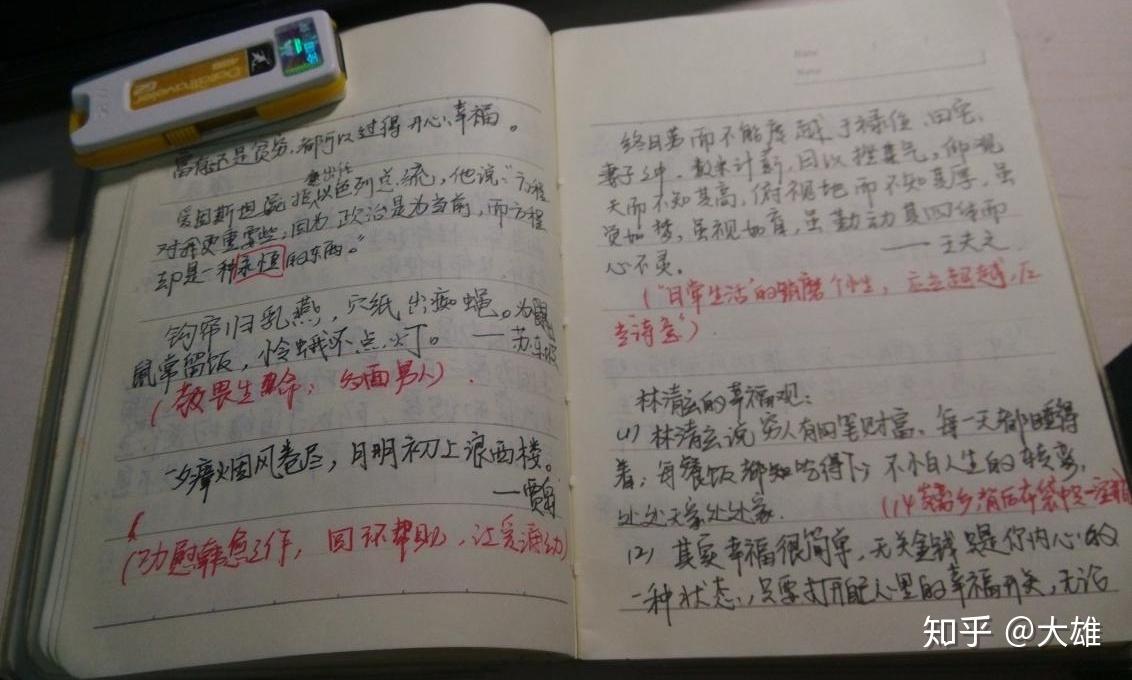 富有还是贫穷,都可以过得开心、幸福。
爱因斯坦拒以色列总统,他说:"方程
对我更重要些,因为政治是为当前,而方程
却是一种永恒的东西。"
钩帘归乳燕,穴纸出痴蝇。为鼠
鼠常留饭,怜蛾不点灯。——苏东坡
(敬畏生命;
一夕瘴烟风卷尽,月明初上浪西楼。
——贾岛
终日劳而不能度越于禄位、田宅、
妻子之中,数米计薪,日以挫其气,仰观
天而不知其高,俯视地而不知其厚,虽
觉如梦,虽视如盲,虽勤动其四体而
心不灵。——王夫之
("日常生活"的销磨个性,应当超越,应
当"诗意")
林清玄的幸福观:
(1) 林清玄说穷人有两笔财富、每一天都睡得
着;每餐饭都知吃得下;不怕人生的转弯,
处处无家处处家.
(2) 其实幸福很简单,无关金钱只是你内心的
一种状态,只要打开自己心里的幸福开关,无论
知乎 @大雄